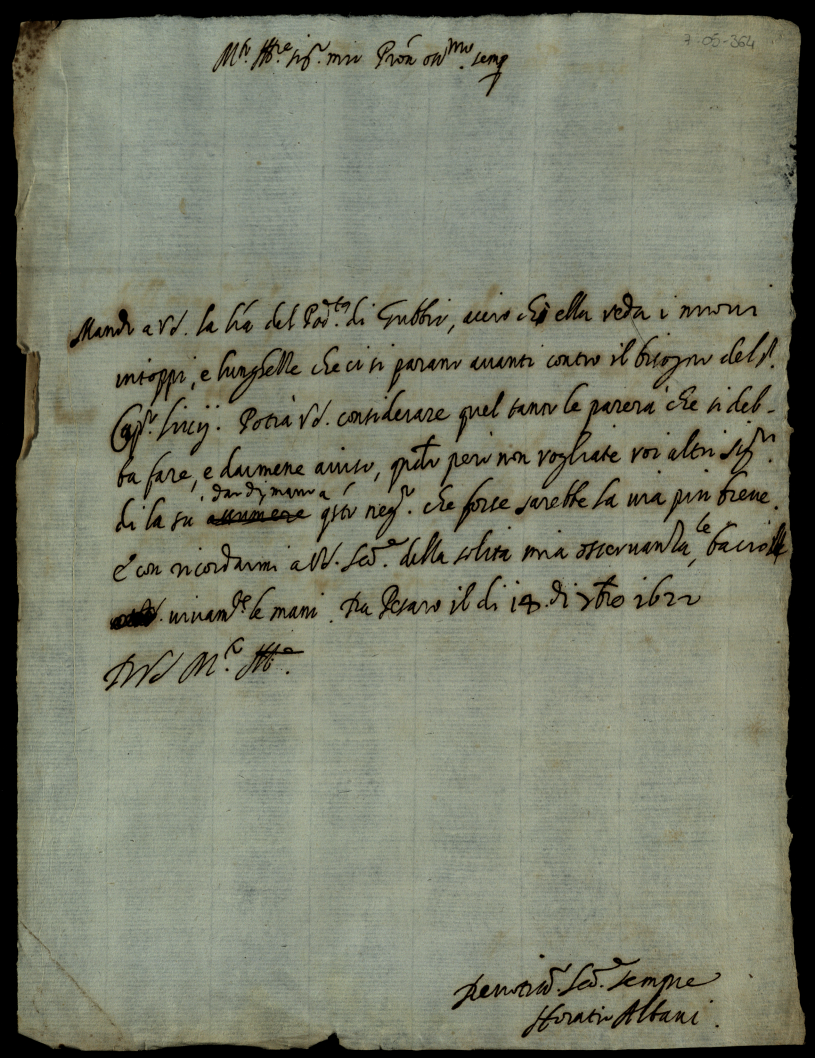 7-05-364
M.to Ill.re sig.r mio Pron oss.mo semp
Mando a V.S. la lra del Pod.tà di Gubbio, acciò ch' ella veda i nuovi
intoppi, e lunghezze che ci si parano avanti contro il bisogno del S.r
Cap.no Lucij. Potrà V.S. considerare quel tanto le parerà che si deb-
ba fare, e darmene aviso, qndo però non vogliate voi altri Sig.ri
di la su, dar dj mano a
qsto neg.o che forse sarebbe la via più breve.
E con ricordarmi a V.S. Se.re della solita mia osservanza, le bacio
vivam.te le mani. Da Pesaro il dì 18. di 1622
D V S M.to Ill.re
Devotiss.o Se.re sempre
Horatio Albani.